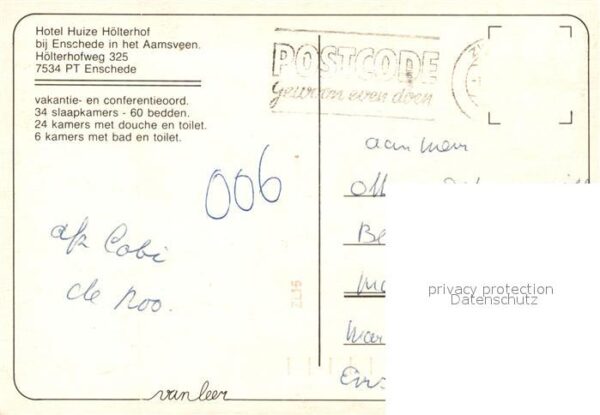 Hotel Huize Hölterhof
bij Enschede in het Aamsveen.
Hölterhofweg 325
7534 PT Enschede
vakantie- en conferentieoord.
34 slaapkamers - 60 bedden.
24 kamers met douche en toilet.
6 kamers met bad en toilet.
POSTCODE
gewoon even doen
006
afz Cobi
de Roo.
aan
Be
privacy protection
Datenschutz
ZL16
van leer